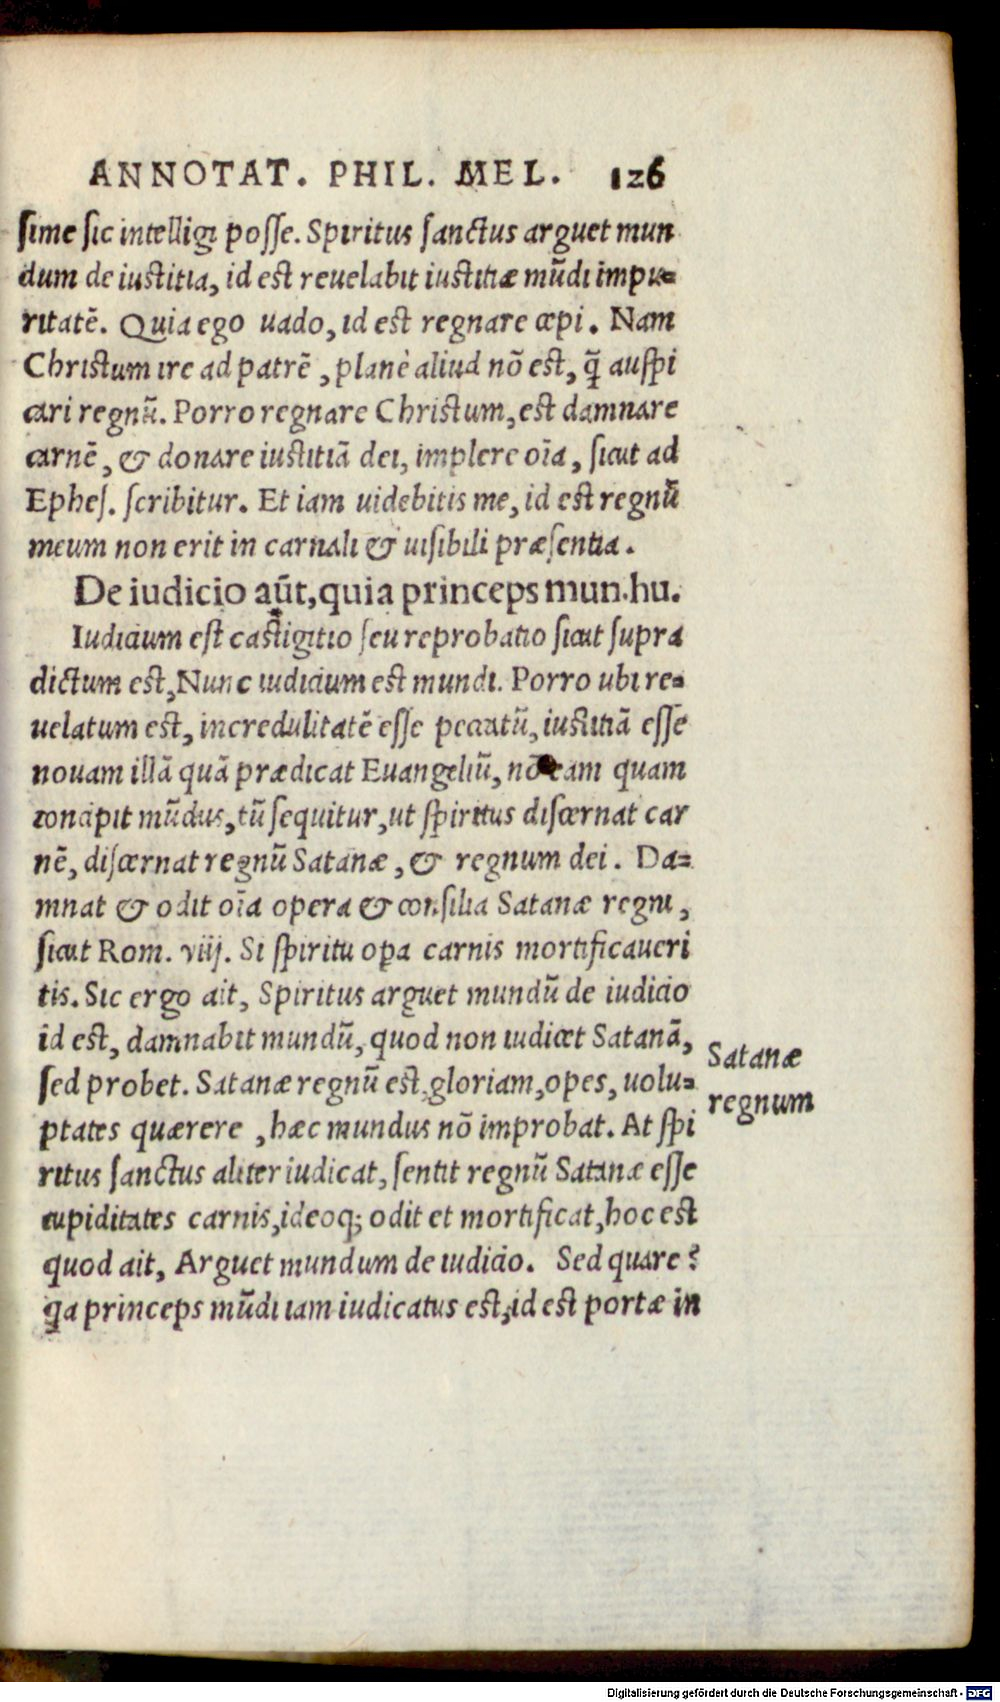 ANNOTAT. PHIL. MEL. 126
ſime ſic intelligi poſſe. Spiritus ſanctus arguet mun
dum de iustitia, id est reuelabit iustitiæ mũdi impu=
ritatẽ. Quia ego uado, id est regnare cœpi. Nam
Christum ire ad patrẽ, planè aliud nõ est, q̃ auſpi
cari regnũ. Porro regnare Christum, est damnare
carnẽ, & donare iustitiã dei, implere oĩa, ſicut ad
Epheſ. ſcribitur. Et iam uidebitis me, id est regnũ
meum non erit in carnali & uiſibili præſentia.
De iudicio aũt, quia princeps mun. hu.
Iudicium est castigatio ſeu reprobatio ſicut ſupra
dictum est, Nunc iudicium est mundi. Porro ubi re=
uelatum est, incredulitatẽ eſſe peccatũ, iustitiã eſſe
nouam illã quã prædicat Euangeliũ, nõ eam quam
concipit mũdus, tũ ſequitur, ut ſpiritus diſcernat car
nẽ, diſcernat regnũ Satanæ, & regnum dei. Da=
mnat & odit oĩa opera & conſilia Satanæ regni,
ſicut Rom. viij. Si ſpiritu oꝑa carnis mortificaueri
tis. Sic ergo ait, Spiritus arguet mundũ de iudicio
id est, damnabit mundũ, quod non iudicet Satanã,
ſed probet. Satanæ regnũ est, gloriam, opes, uolu=
ptates quærere, hæc mundus nõ improbat. At ſpi
ritus ſanctus aliter iudicat, ſentit regnũ Satanæ eſſe
cupiditates carnis, ideoq; odit et mortificat, hoc est
quod ait, Arguet mundum de iudicio. Sed quare?
ꝗa princeps mũdi iam iudicatus est, id est portæ in
Satanæ
regnum
Digitalisierung gefördert durch die Deutsche Forschungsgemeinschaft - DFG